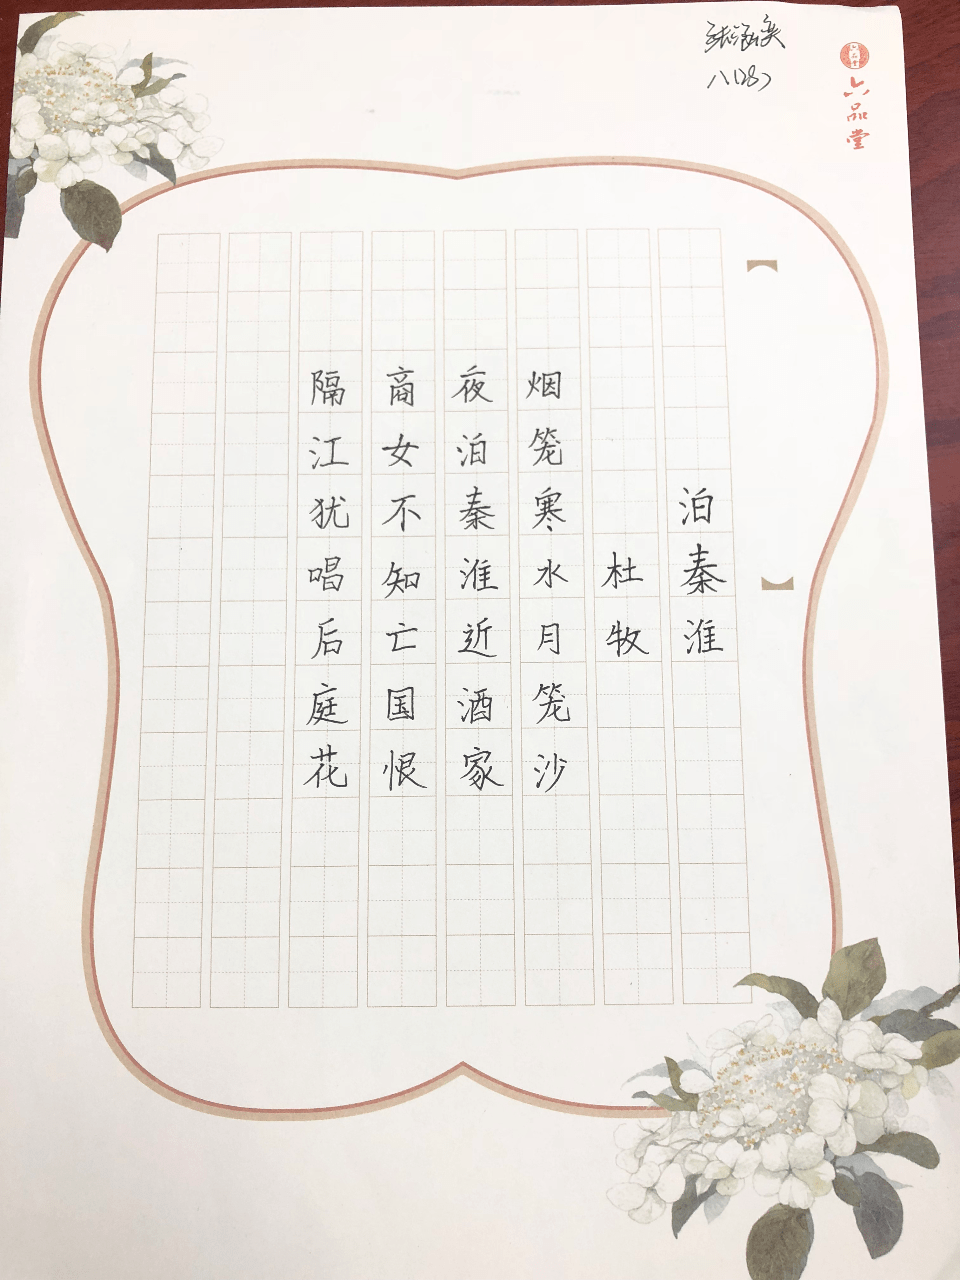 泊秦淮
杜牧
烟笼寒水月笼沙
夜泊秦淮近酒家
商女不知亡国恨
隔江犹唱后庭花
八(28)
六品堂